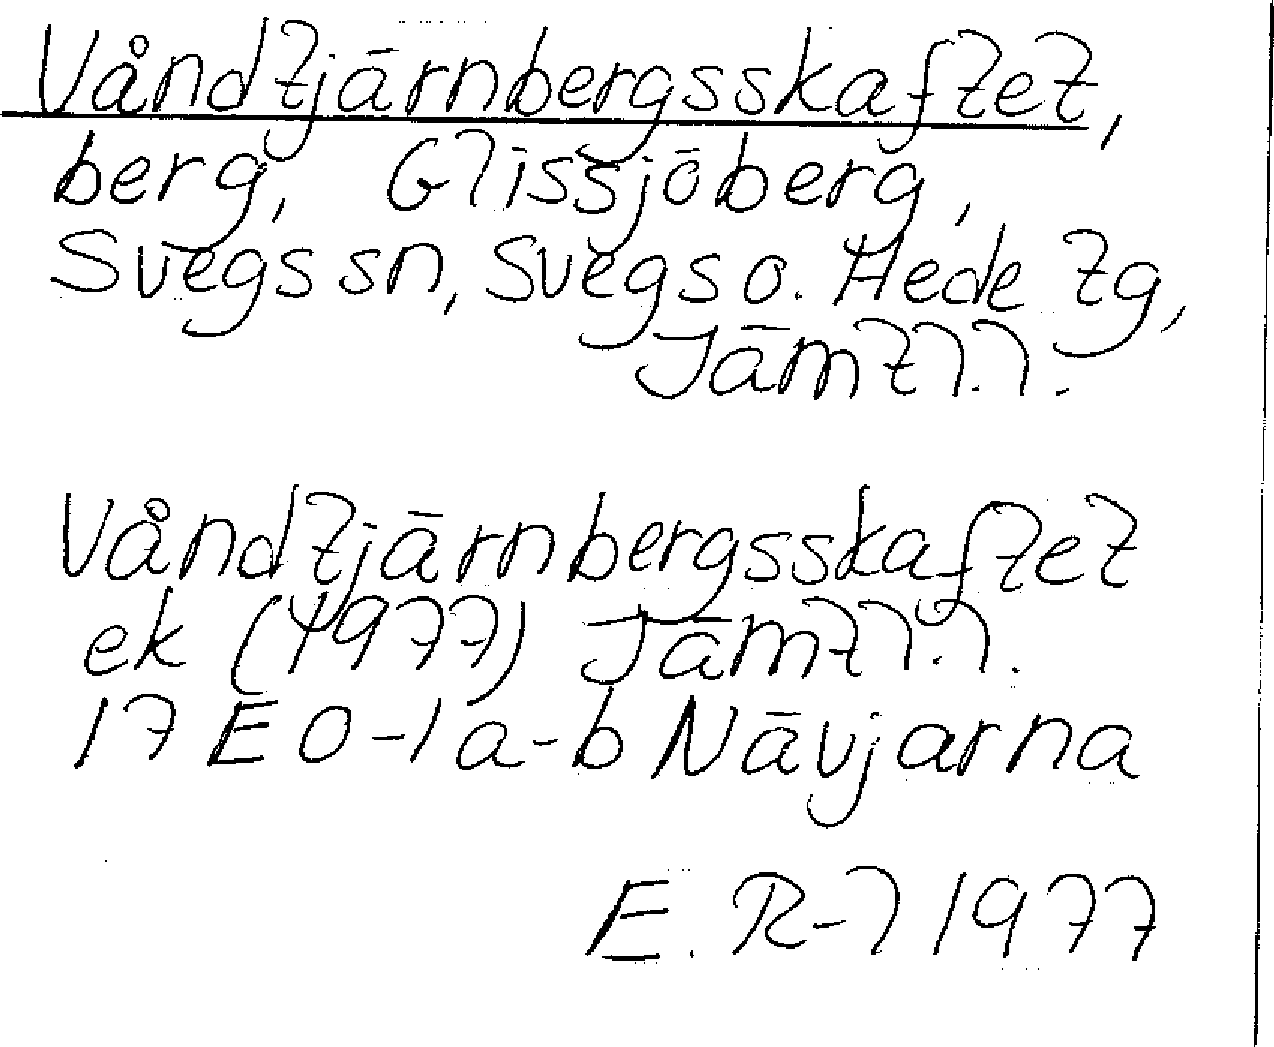 Våndtjärnbergsskaftet,
berg, Glissjöberg,
Svegs sn, Svegs o. Hede tg,
Jämtl.l.
Våndtjärnbergsskaftet
ek (1977) Jämtl.l.
17 E 0-1 a-b Nävjarna
E. R-l 1977